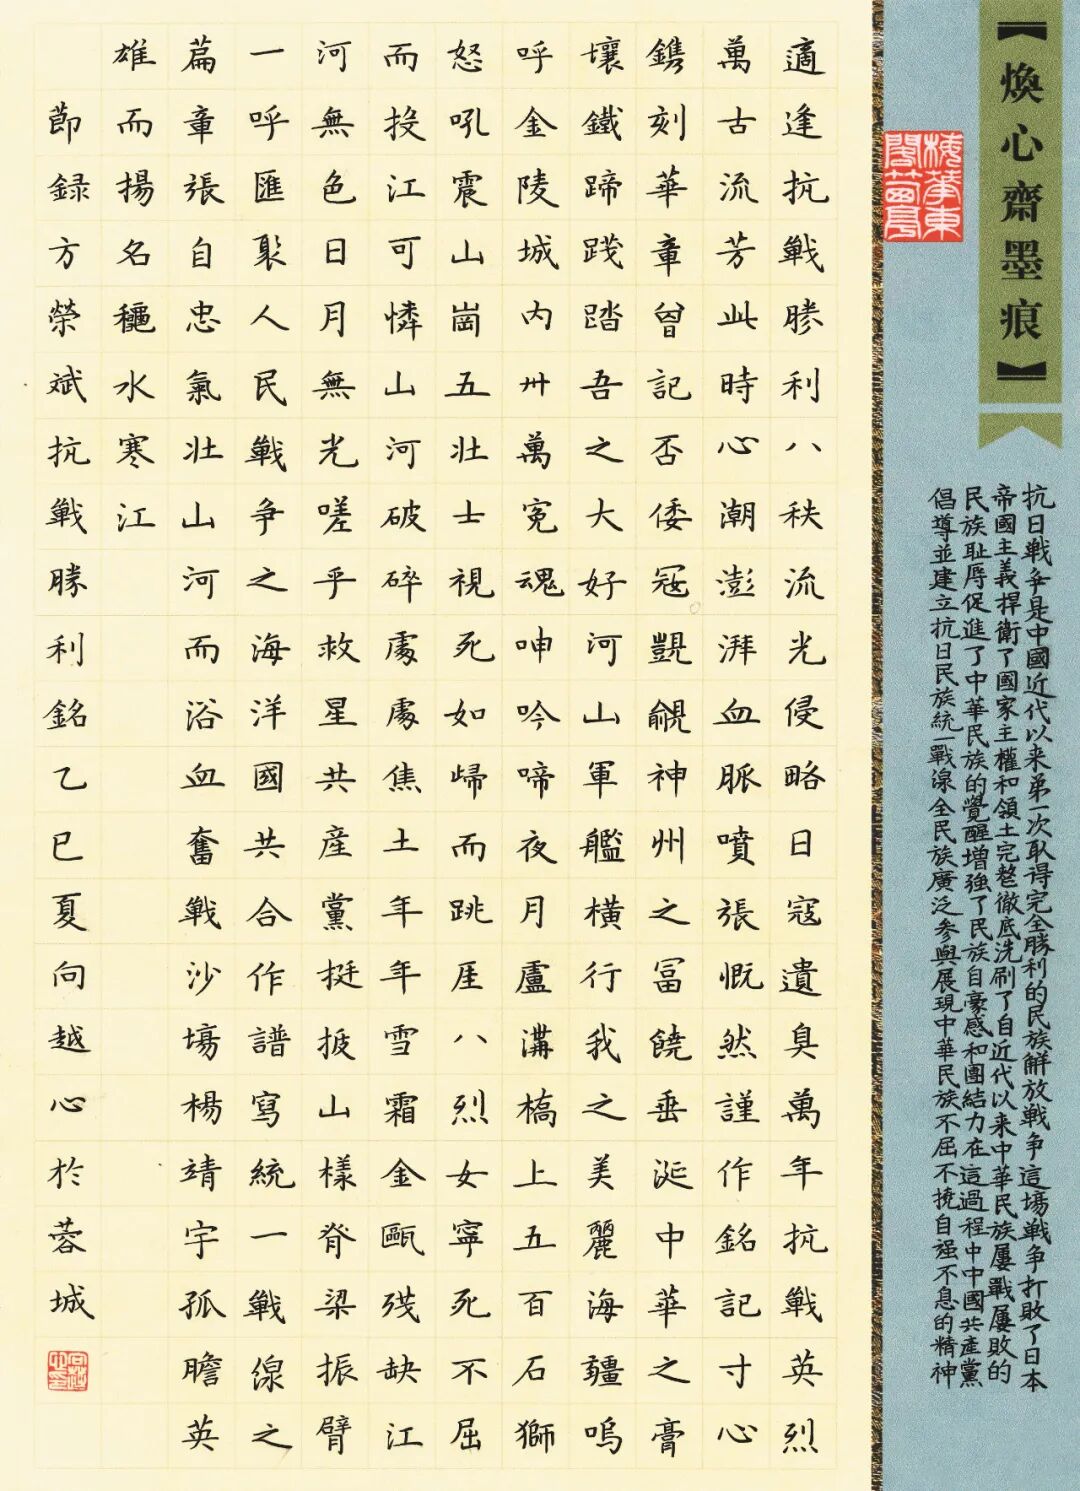 【煥心齋墨痕】
抗日戰争是中國近代以来第一次取得完全勝利的民族解放戰争這場戰争打敗了日本
帝國主義捍衛了國家主權和領土完整徹底洗刷了自近代以来中華民族屢戰屢敗的
民族耻辱促進了中華民族的覺醒增強了民族自豪感和團結力在這過程中中國共產黨
倡導並建立抗日民族統一戰線全民族廣泛参與展現中華民族不屈不撓自强不息的精神
適逢抗戰勝利八秩流光侵略日寇遺臭萬年抗戰英烈
萬古流芳此時心潮澎湃血脈噴張慨然謹作銘記寸心
鐫刻華章曾記否倭寇覬覦神州之富饒垂涎中華之膏
壤鐵蹄踐踏吾之大好河山軍艦橫行我之美麗海疆嗚
呼金陵城内卅萬冤魂呻吟啼夜月盧溝橋上五百石獅
怒吼震山崗五壯士視死如歸而跳崖八烈女寧死不屈
而投江可憐山河破碎處處焦土年年雪霜金甌残缺江
河無色日月無光嗟乎救星共產黨挺披山樣脊梁振臂
一呼匯聚人民戰争之海洋國共合作譜寫統一戰線之
篇章張自忠氣壯山河而浴血奮戰沙場楊靖宇孤膽英
雄而揚名龝水寒江
節録方榮斌抗戰勝利銘乙巳夏向越心於蓉城
向越心印